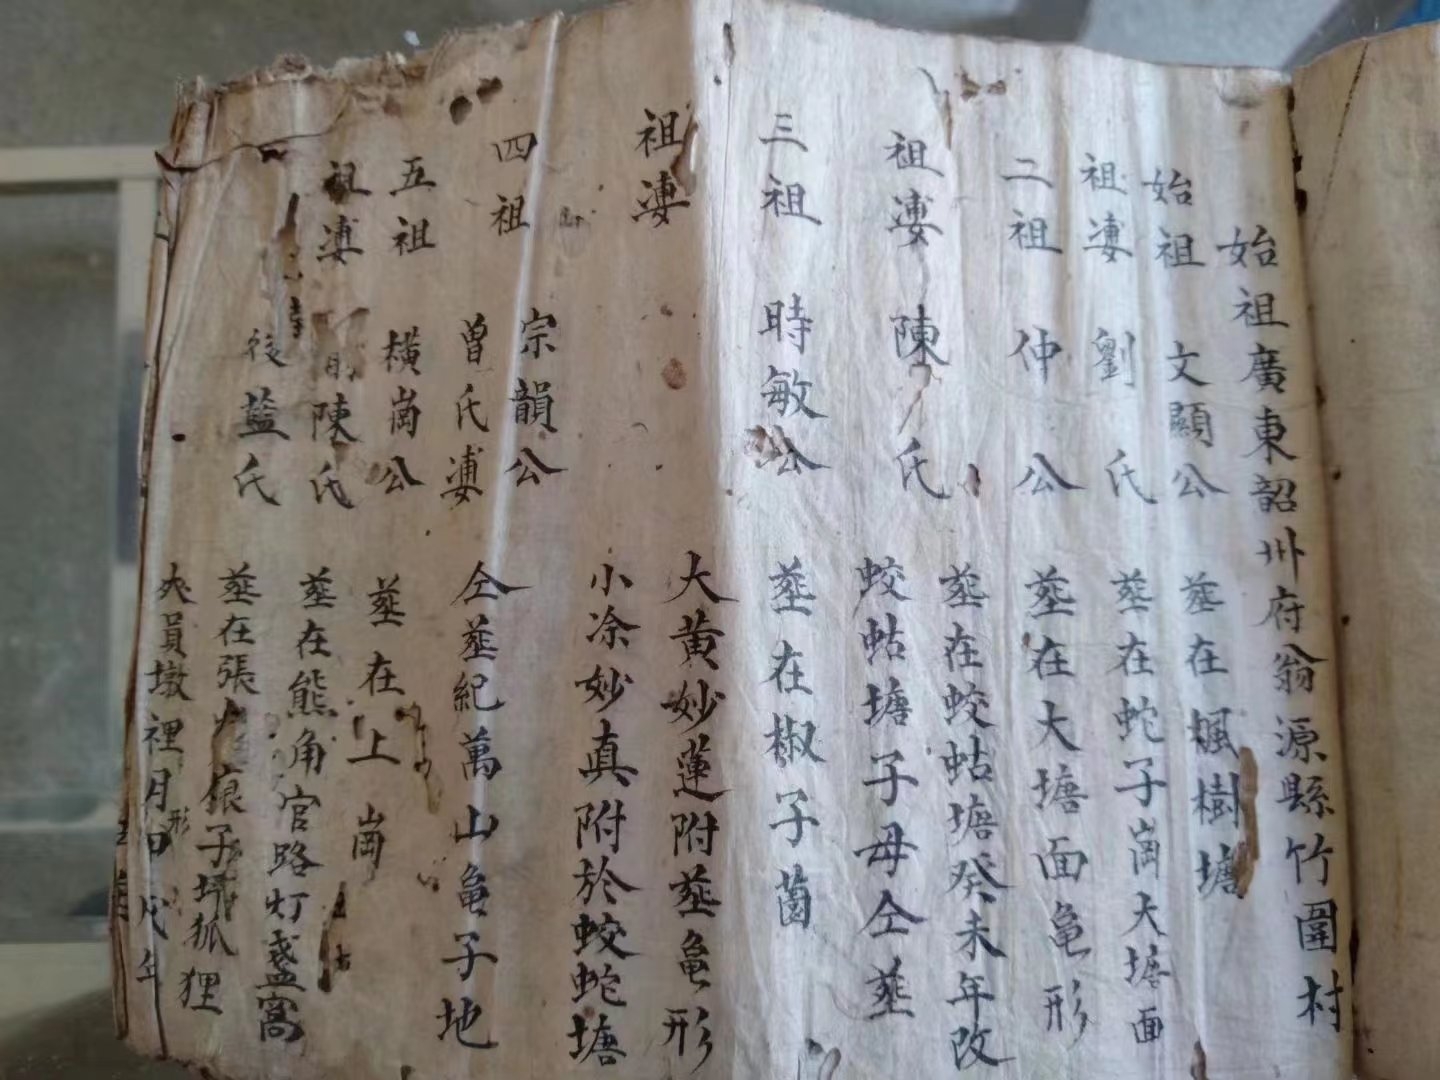 始祖廣東韶州府翁源縣竹圍村
始祖 文顯公 葬在楓樹塘
祖婆 劉氏 葬在蛇子崗大塘面
二祖 仲公 葬在大塘面龜形
祖婆 陳氏 葬在蛟蛄塘癸未年改
蛟蛄塘子母仝葬
三祖 時敏公 葬在椒子茵
祖婆 大黄妙蓮附葬龜形
小凃妙真附於蛟蛇塘
四祖 宗韻公
曾氏婆 仝葬紀萬山龜子地
五祖 橫崗公 葬在上崗
祖婆 前陳氏 葬在熊角官路灯盞窩
後藍氏 葬在張 子 狐狸
形
員墩裡月 戌年